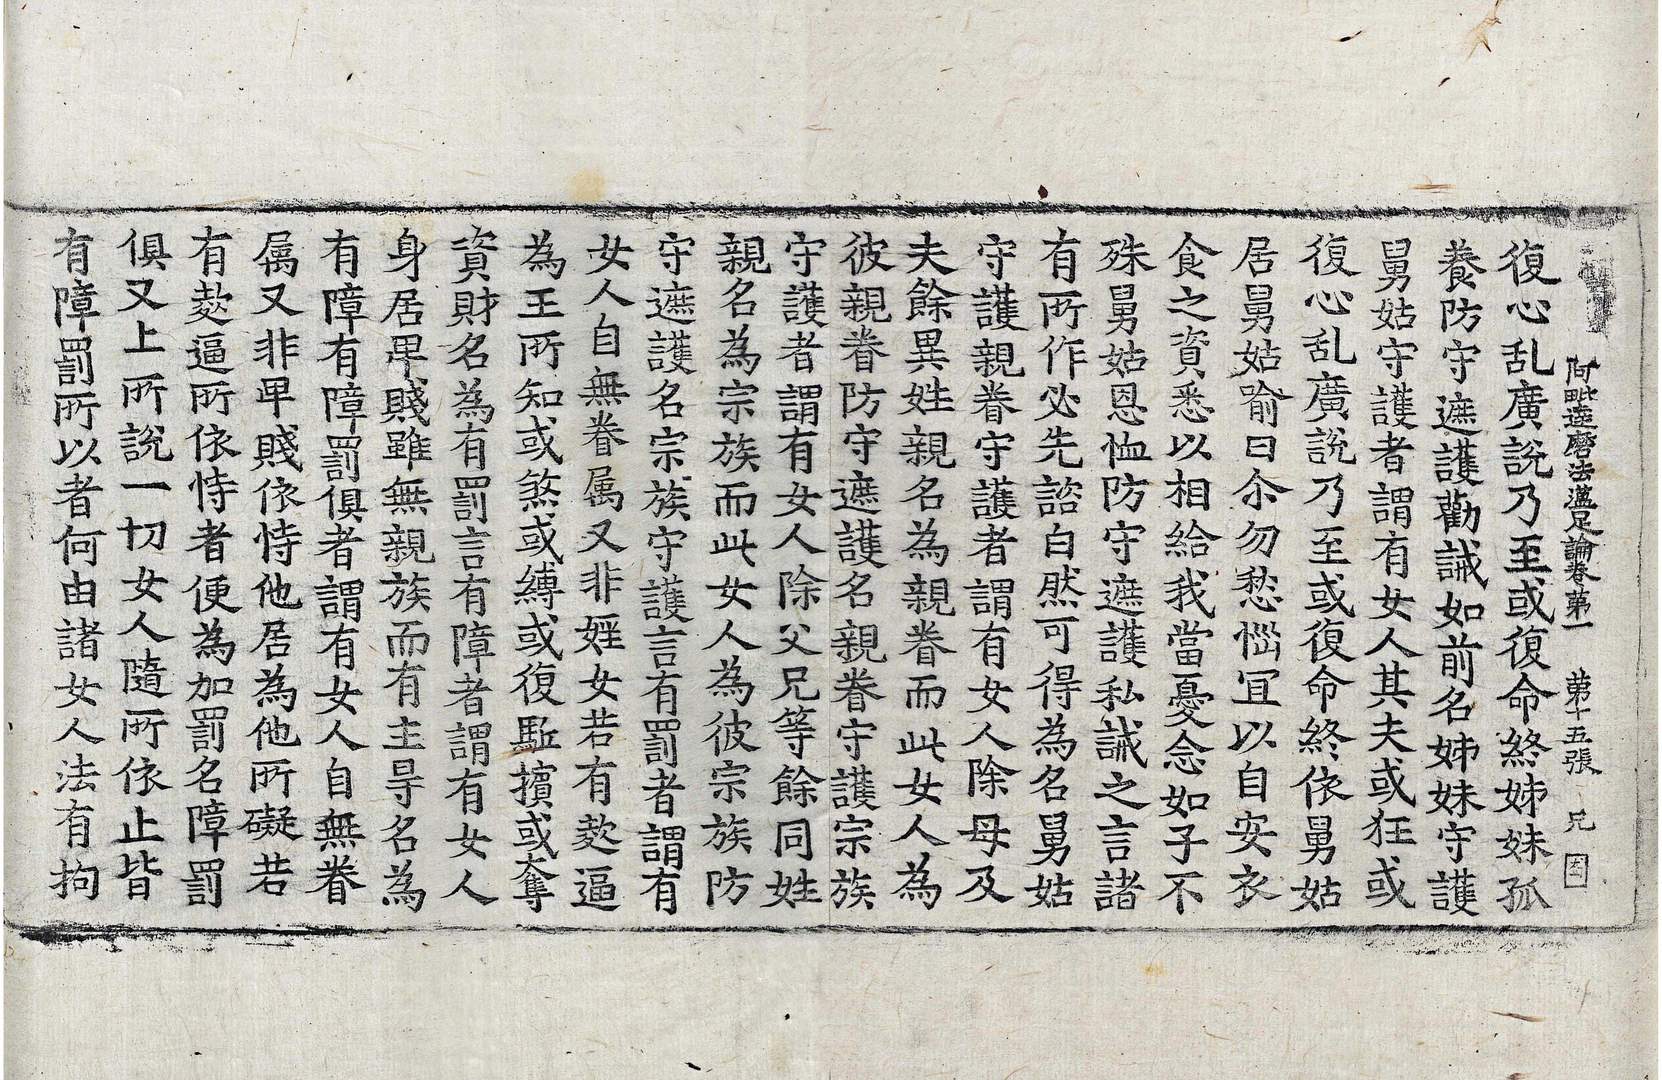 阿毗達磨法蘊足論卷第一 第十五張 兄
復心乱廣說乃至或復命終姊妹孤
養防守遮護勸誡如前名姊妹守護
舅姑守護者謂有女人其夫或狂或
復心乱廣說乃至或復命終依舅姑
居舅姑喻曰尒勿愁惱宜以自安衣
食之資悉以相給我當憂念如子不
殊舅姑恩恤防守遮護私誡之言諸
有所作必先諮白然可得為名舅姑
守護親眷守護者謂有女人除母及
夫餘異姓親名為親眷而此女人為
彼親眷防守遮護名親眷守護宗族
守護者謂有女人除父兄等餘同姓
親名為宗族而此女人為彼宗族防
守遮護名宗族守護言有罰者謂有
女人自無眷属又非婬女若有欻逼
為王所知或煞或縛或復駈擯或奪
資財名為有罰言有障者謂有女人
身居卑賤雖無親族而有主㝵名為
有障有障罰俱者謂有女人自無眷
属又非卑賤依恃他居為他所礙若
有欻逼所依恃者便為加罰名障罰
俱又上所說一切女人隨所依止皆
有障罰所以者何由諸女人法有拘